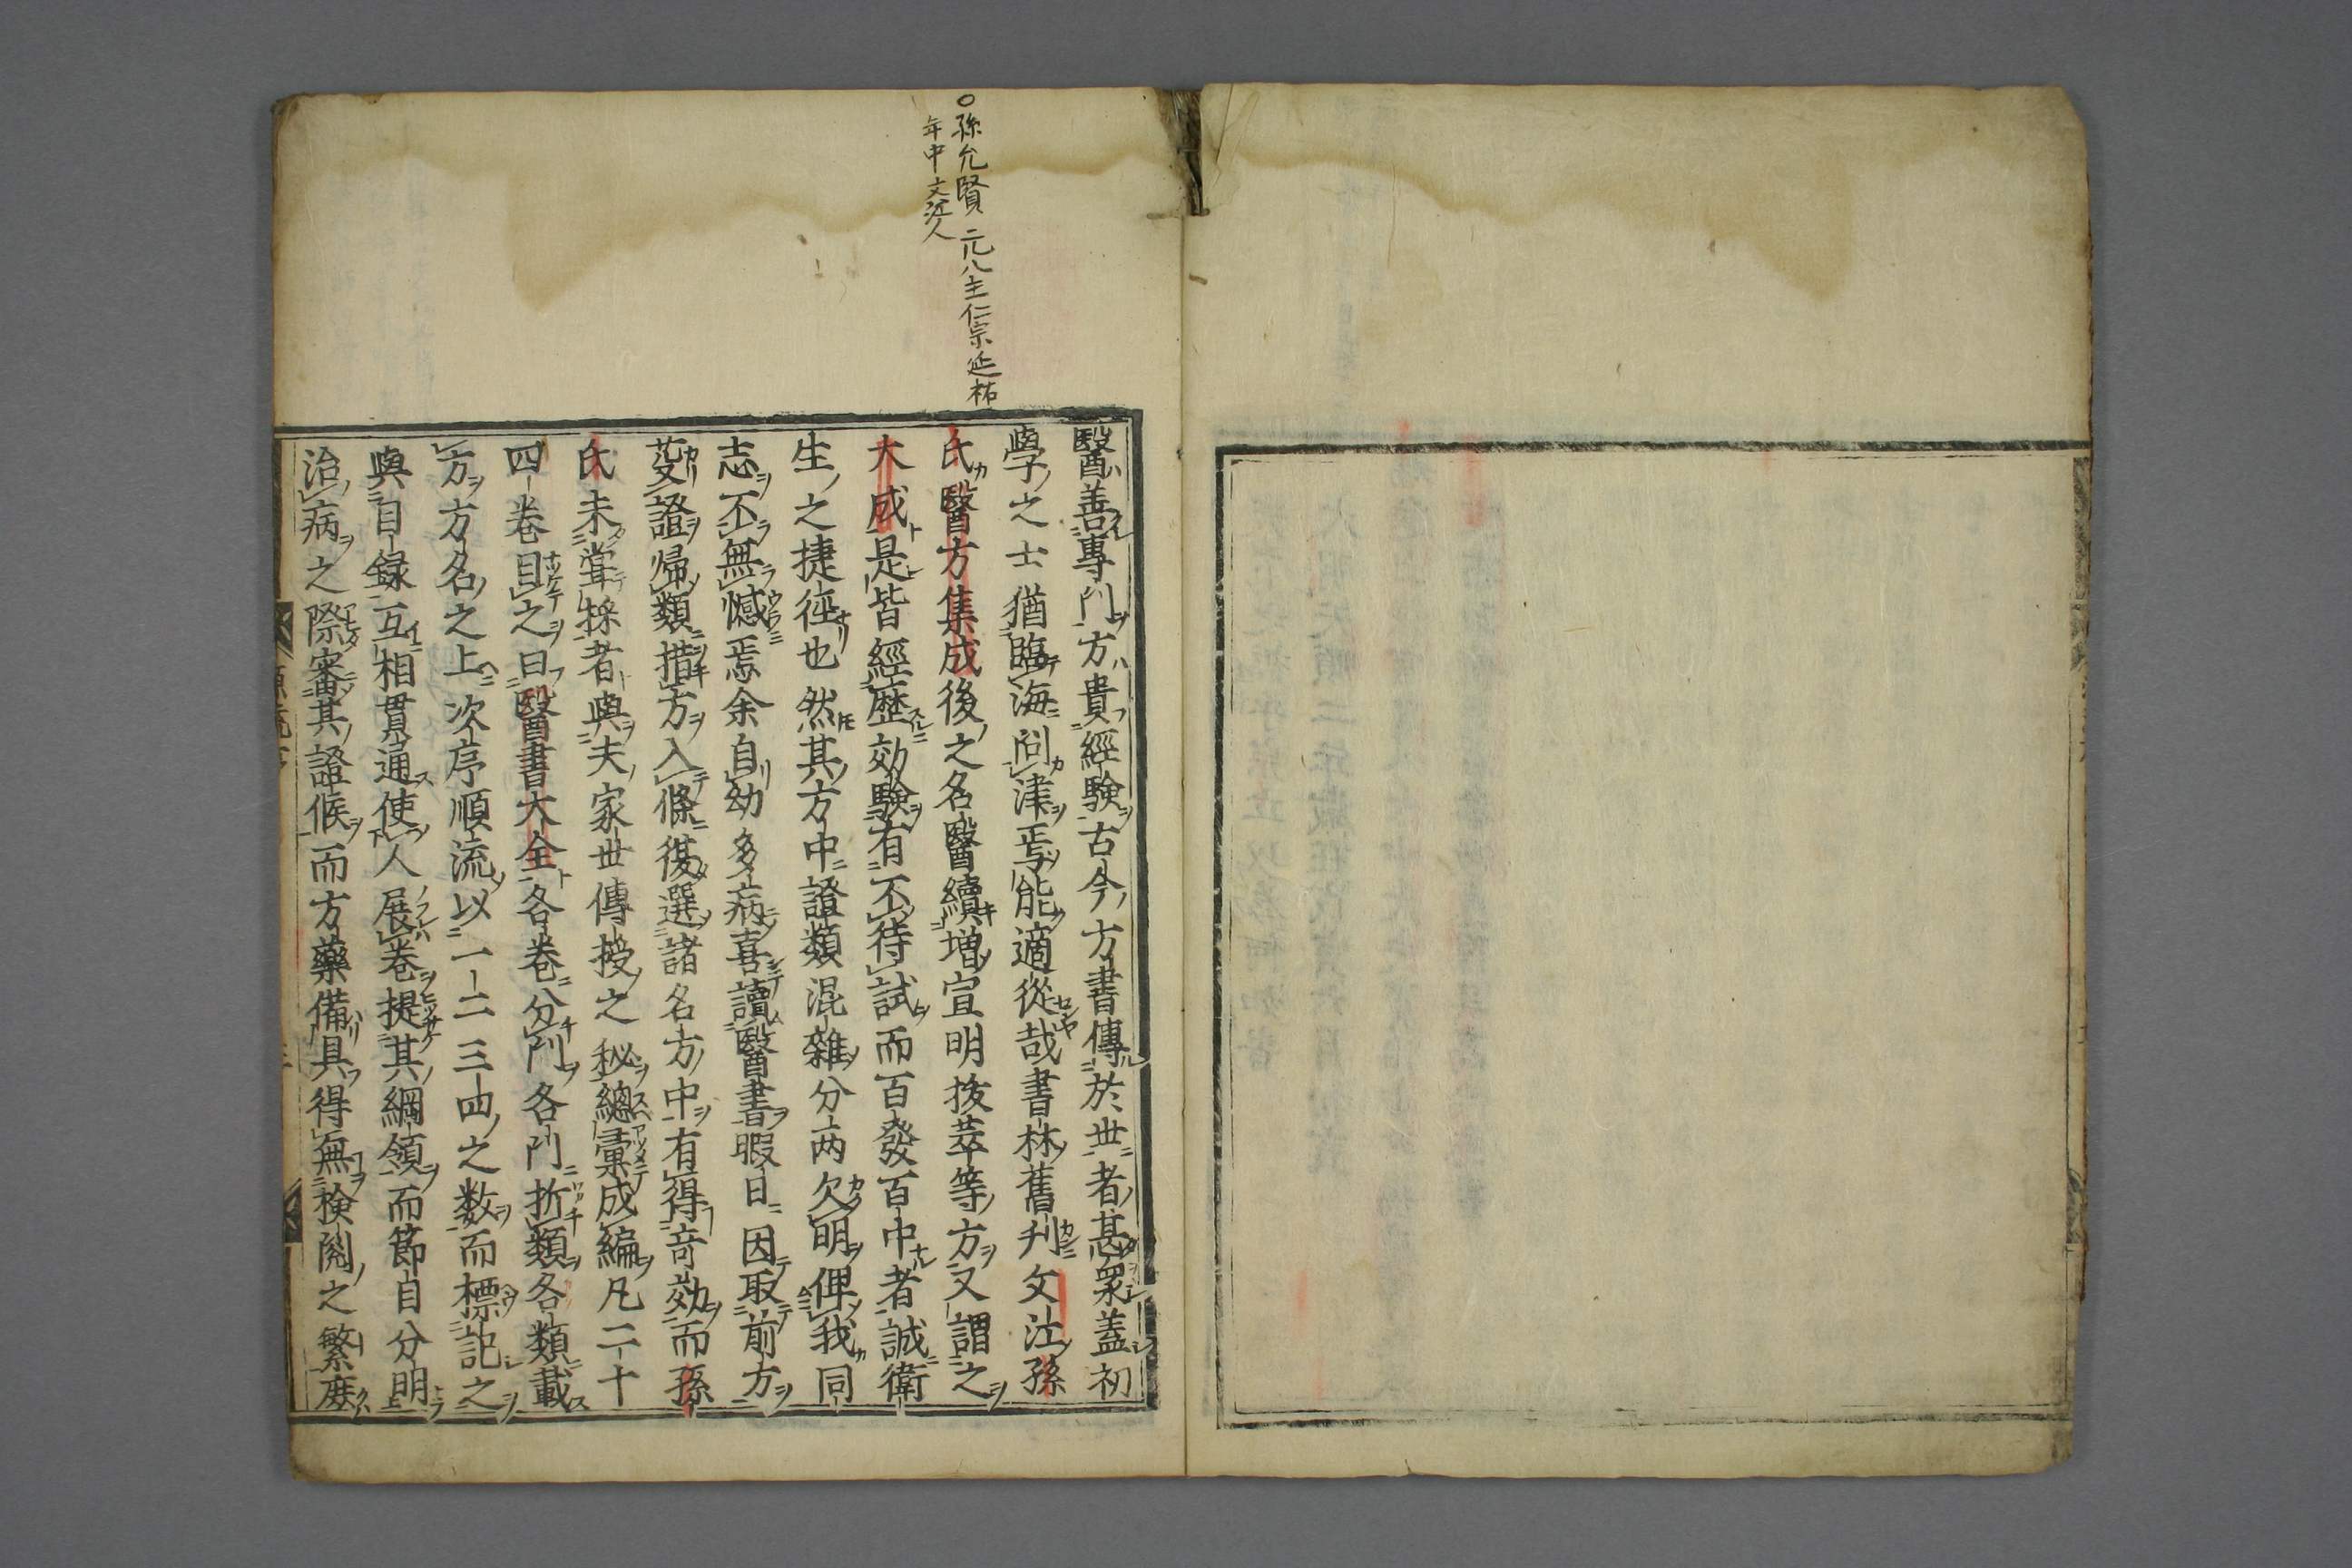 ○孫允賢 元八主仁宗延祐
年中文江人
醫善專門方貴經驗古今方書傳於世者甚衆蓋初
學之士猶臨海問津焉能適從哉書林舊刋文江孫
氏醫方集成後之名醫續增宣明拔萃等方又謂之
大成是皆經歷効驗有不待試而百發百中者誠衛
生之捷徑也然其方中證類混雜分两欠明俾我同
志不無憾焉余自幼多病喜讀醫書暇日因取前方
芟證歸類措方入條復選諸名方中有得竒効而孫
氏未甞採者與夫家世傳授之秘總彙成編凡二十
四卷目之曰醫書大全各卷分門各門折類各類載
方方名之上次序順流以一二三四之数而標記之
與目録互相貫通使人展卷提其綱領而節自分明
治病之際審其證候而方藥備具得無檢閱之繁庶